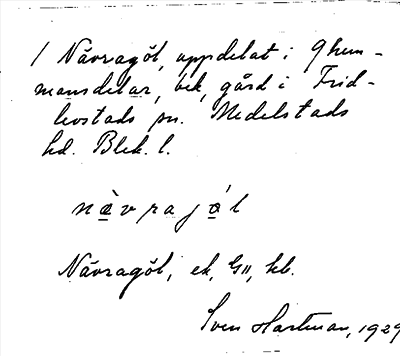 / Nävragöl, uppdelat i 9 hem-
mansdelar, bek, gård i Frid-
levstads sn. Medelstads
hd. Blek. l.
nävrajål
Nävragöl, ek, G11, kb.
Sven Hartman, 1929